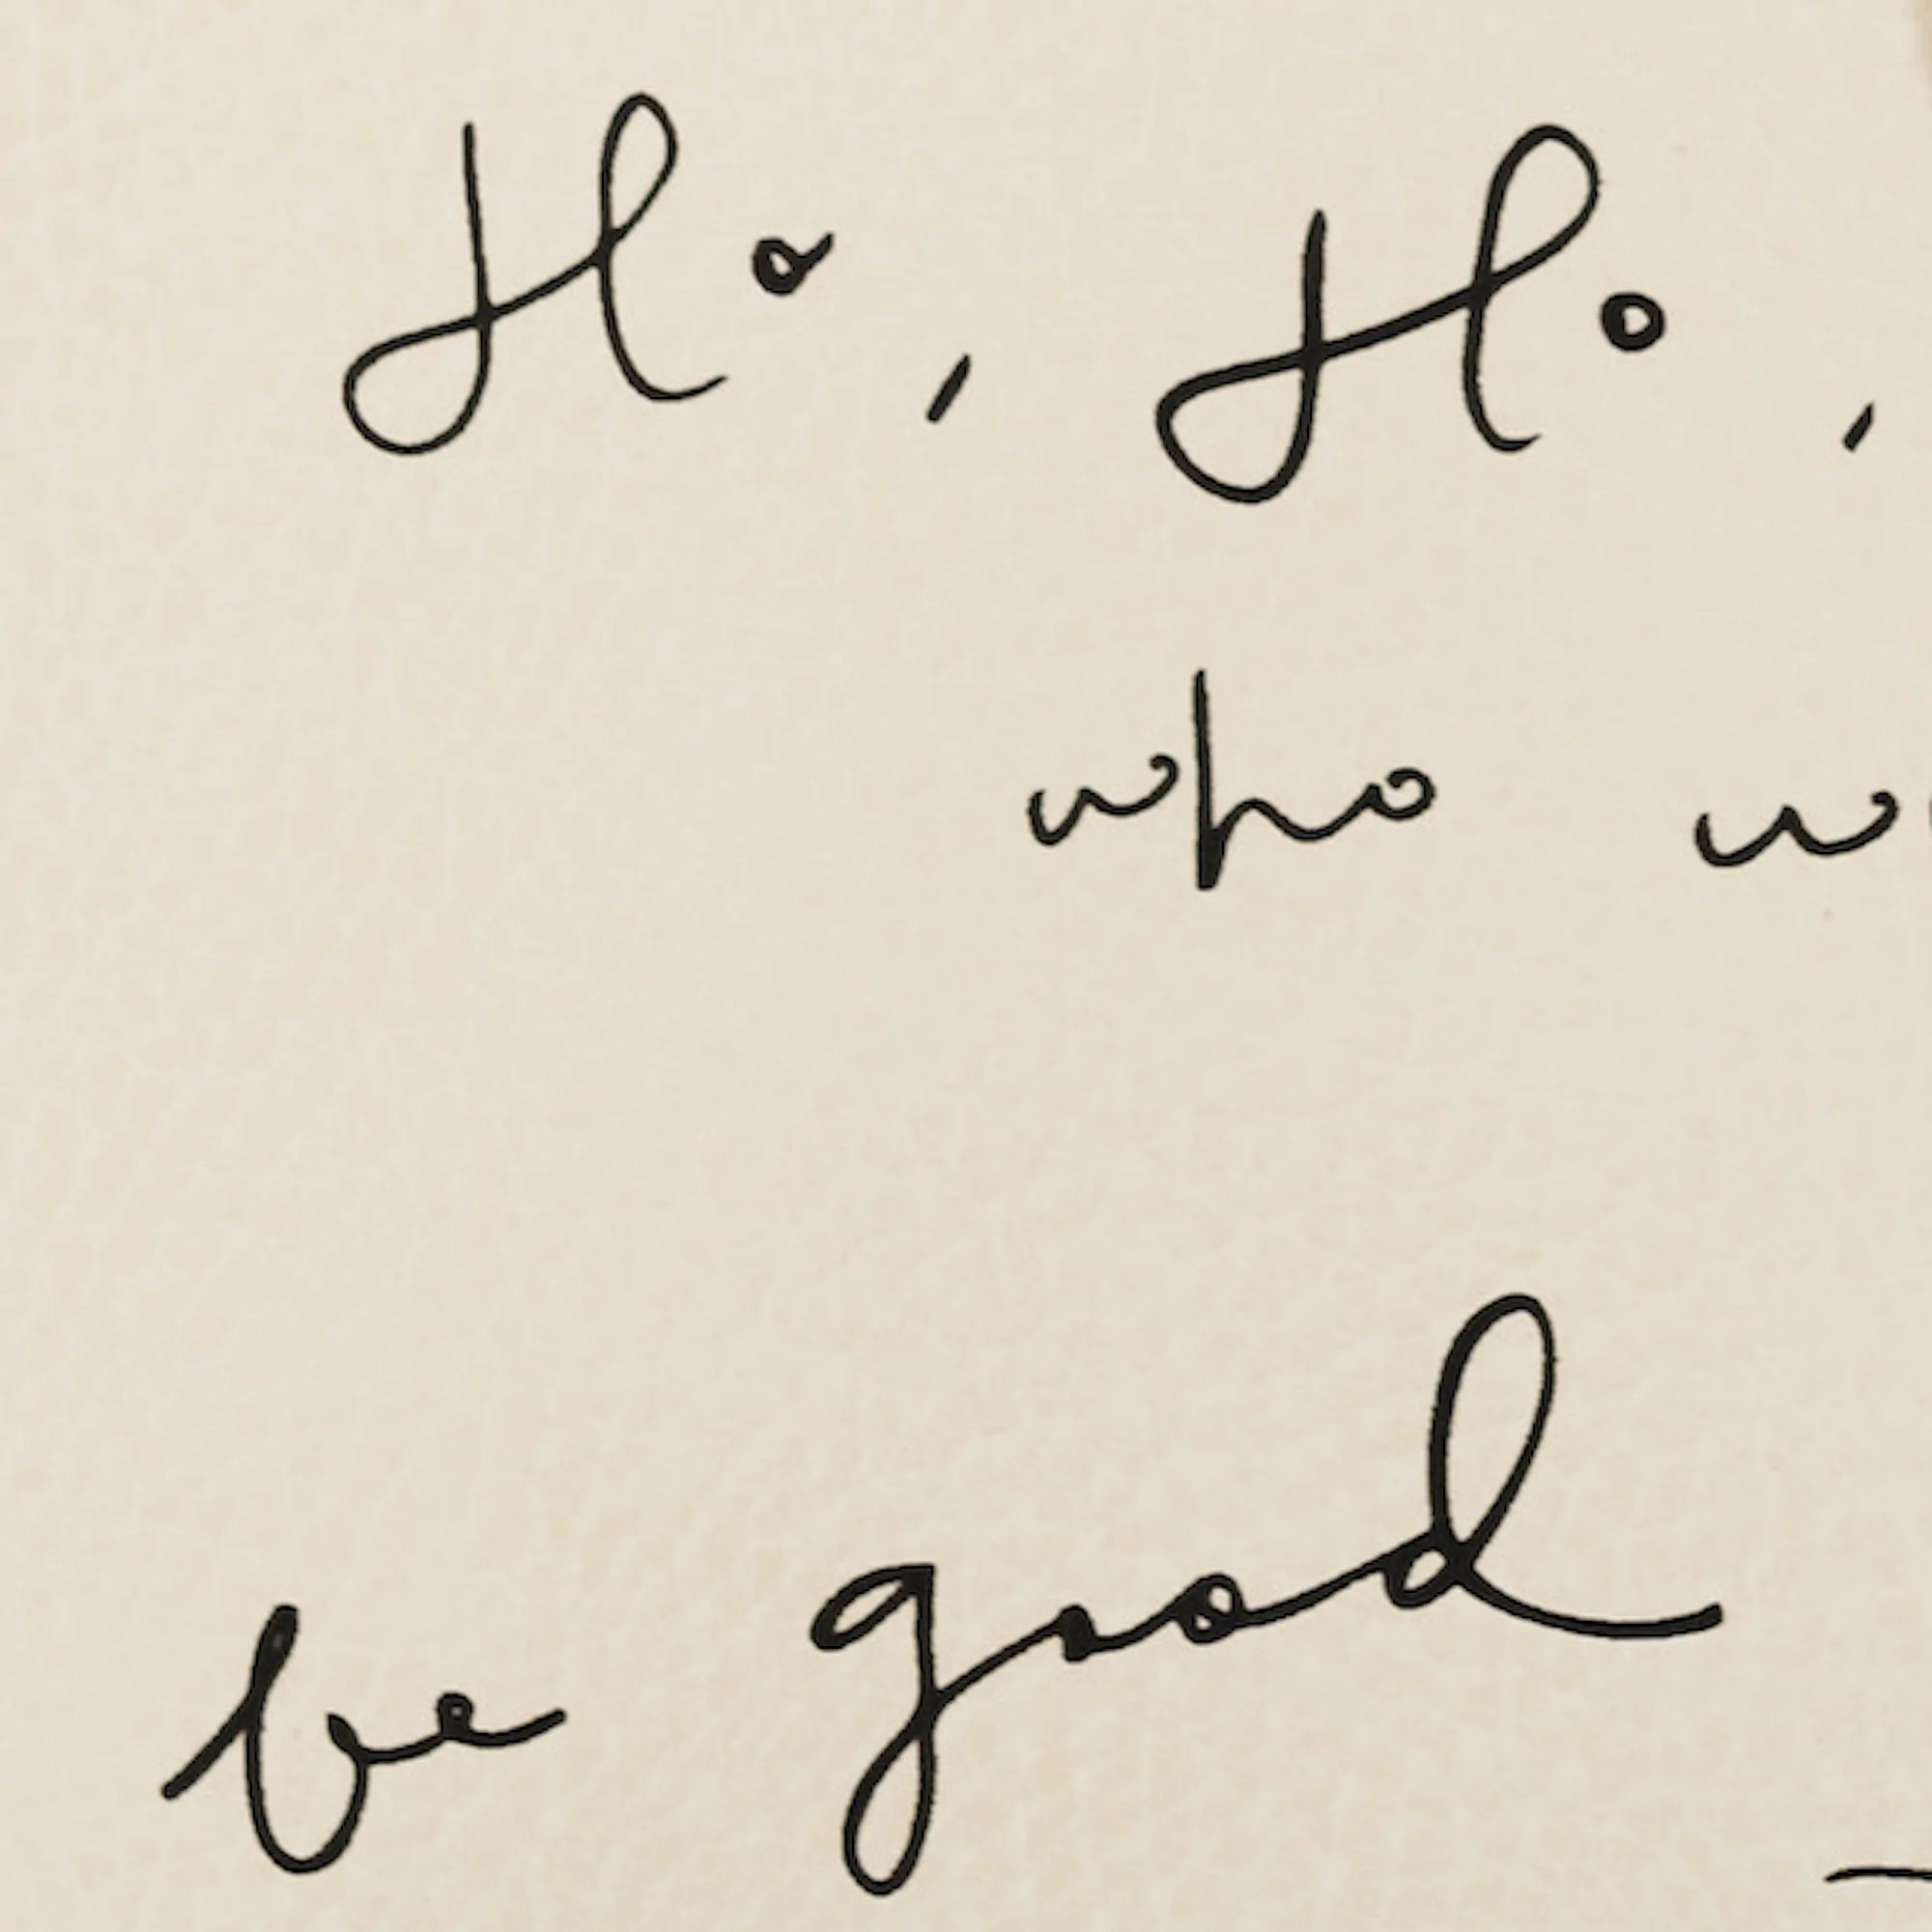 Ho, Ho,
who w
be good